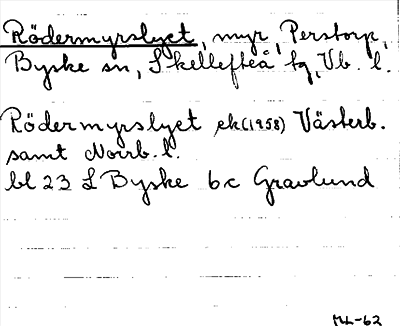 Rödermyrslyet, myr, Perstorp,
Byske sn, Skellefteå tg, Vb. l.
Rödermyrslyet ek (1958) Västerb.
samt Norrb. l.
bl 23 L Byske 6c Gravlund
ML-62